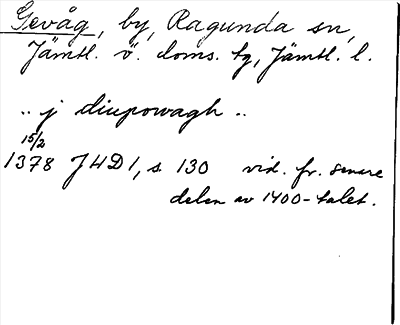 Gevåg, by, Ragunda sn,
Jämtl. v. doms. tg, Jämtl. l.
.. j diupowagh ..
15/2
1378 JHD 1, s 130 vid. fr. senare
delen av 1400-talet.